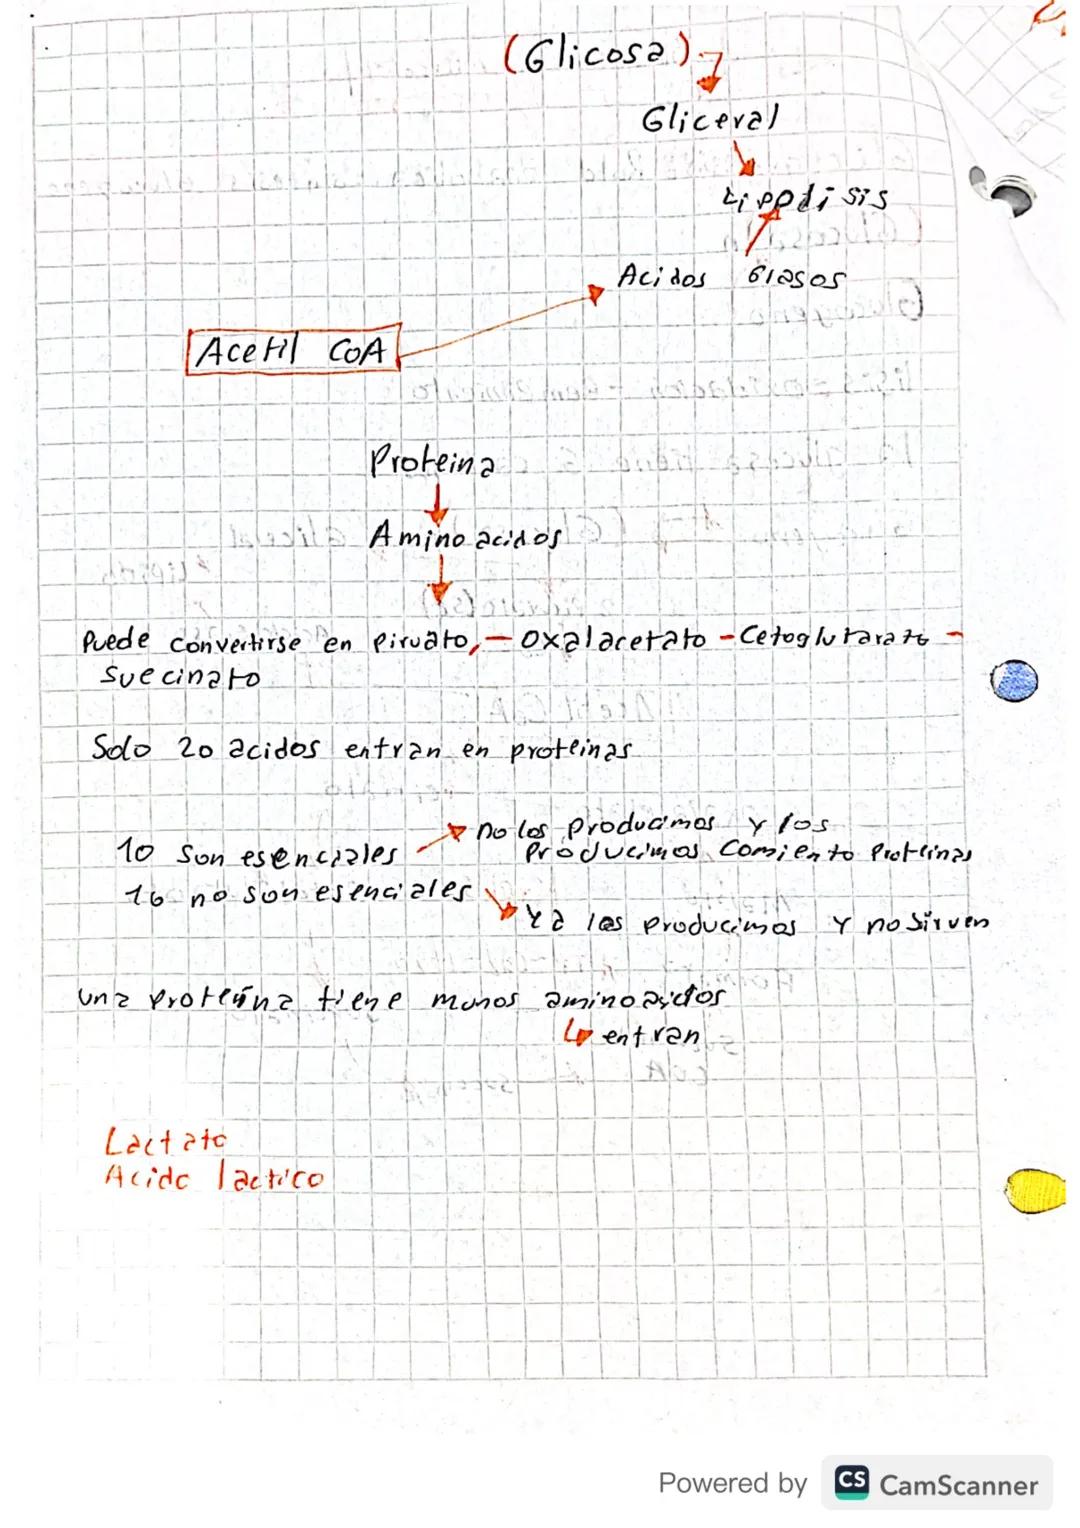 (Glicosa)
Gliceral
Lipolisis
Acidos Grasos
Acetil CoA
Proteina
Amino acidos
Puede convertirse en Piruato, - oxalacetato - Cetoglutarato -
Suecinato
Solo 20 acidos entran en proteinas
10 son esenciales
no los producimos y los
Producimos Comiento Proteinas
10 no son esenciales
Ya los producimos y no sirven
una Proteina tiene munos aminoacidos
entran
Lactato
Acido lactico
Powered by CS CamScanner